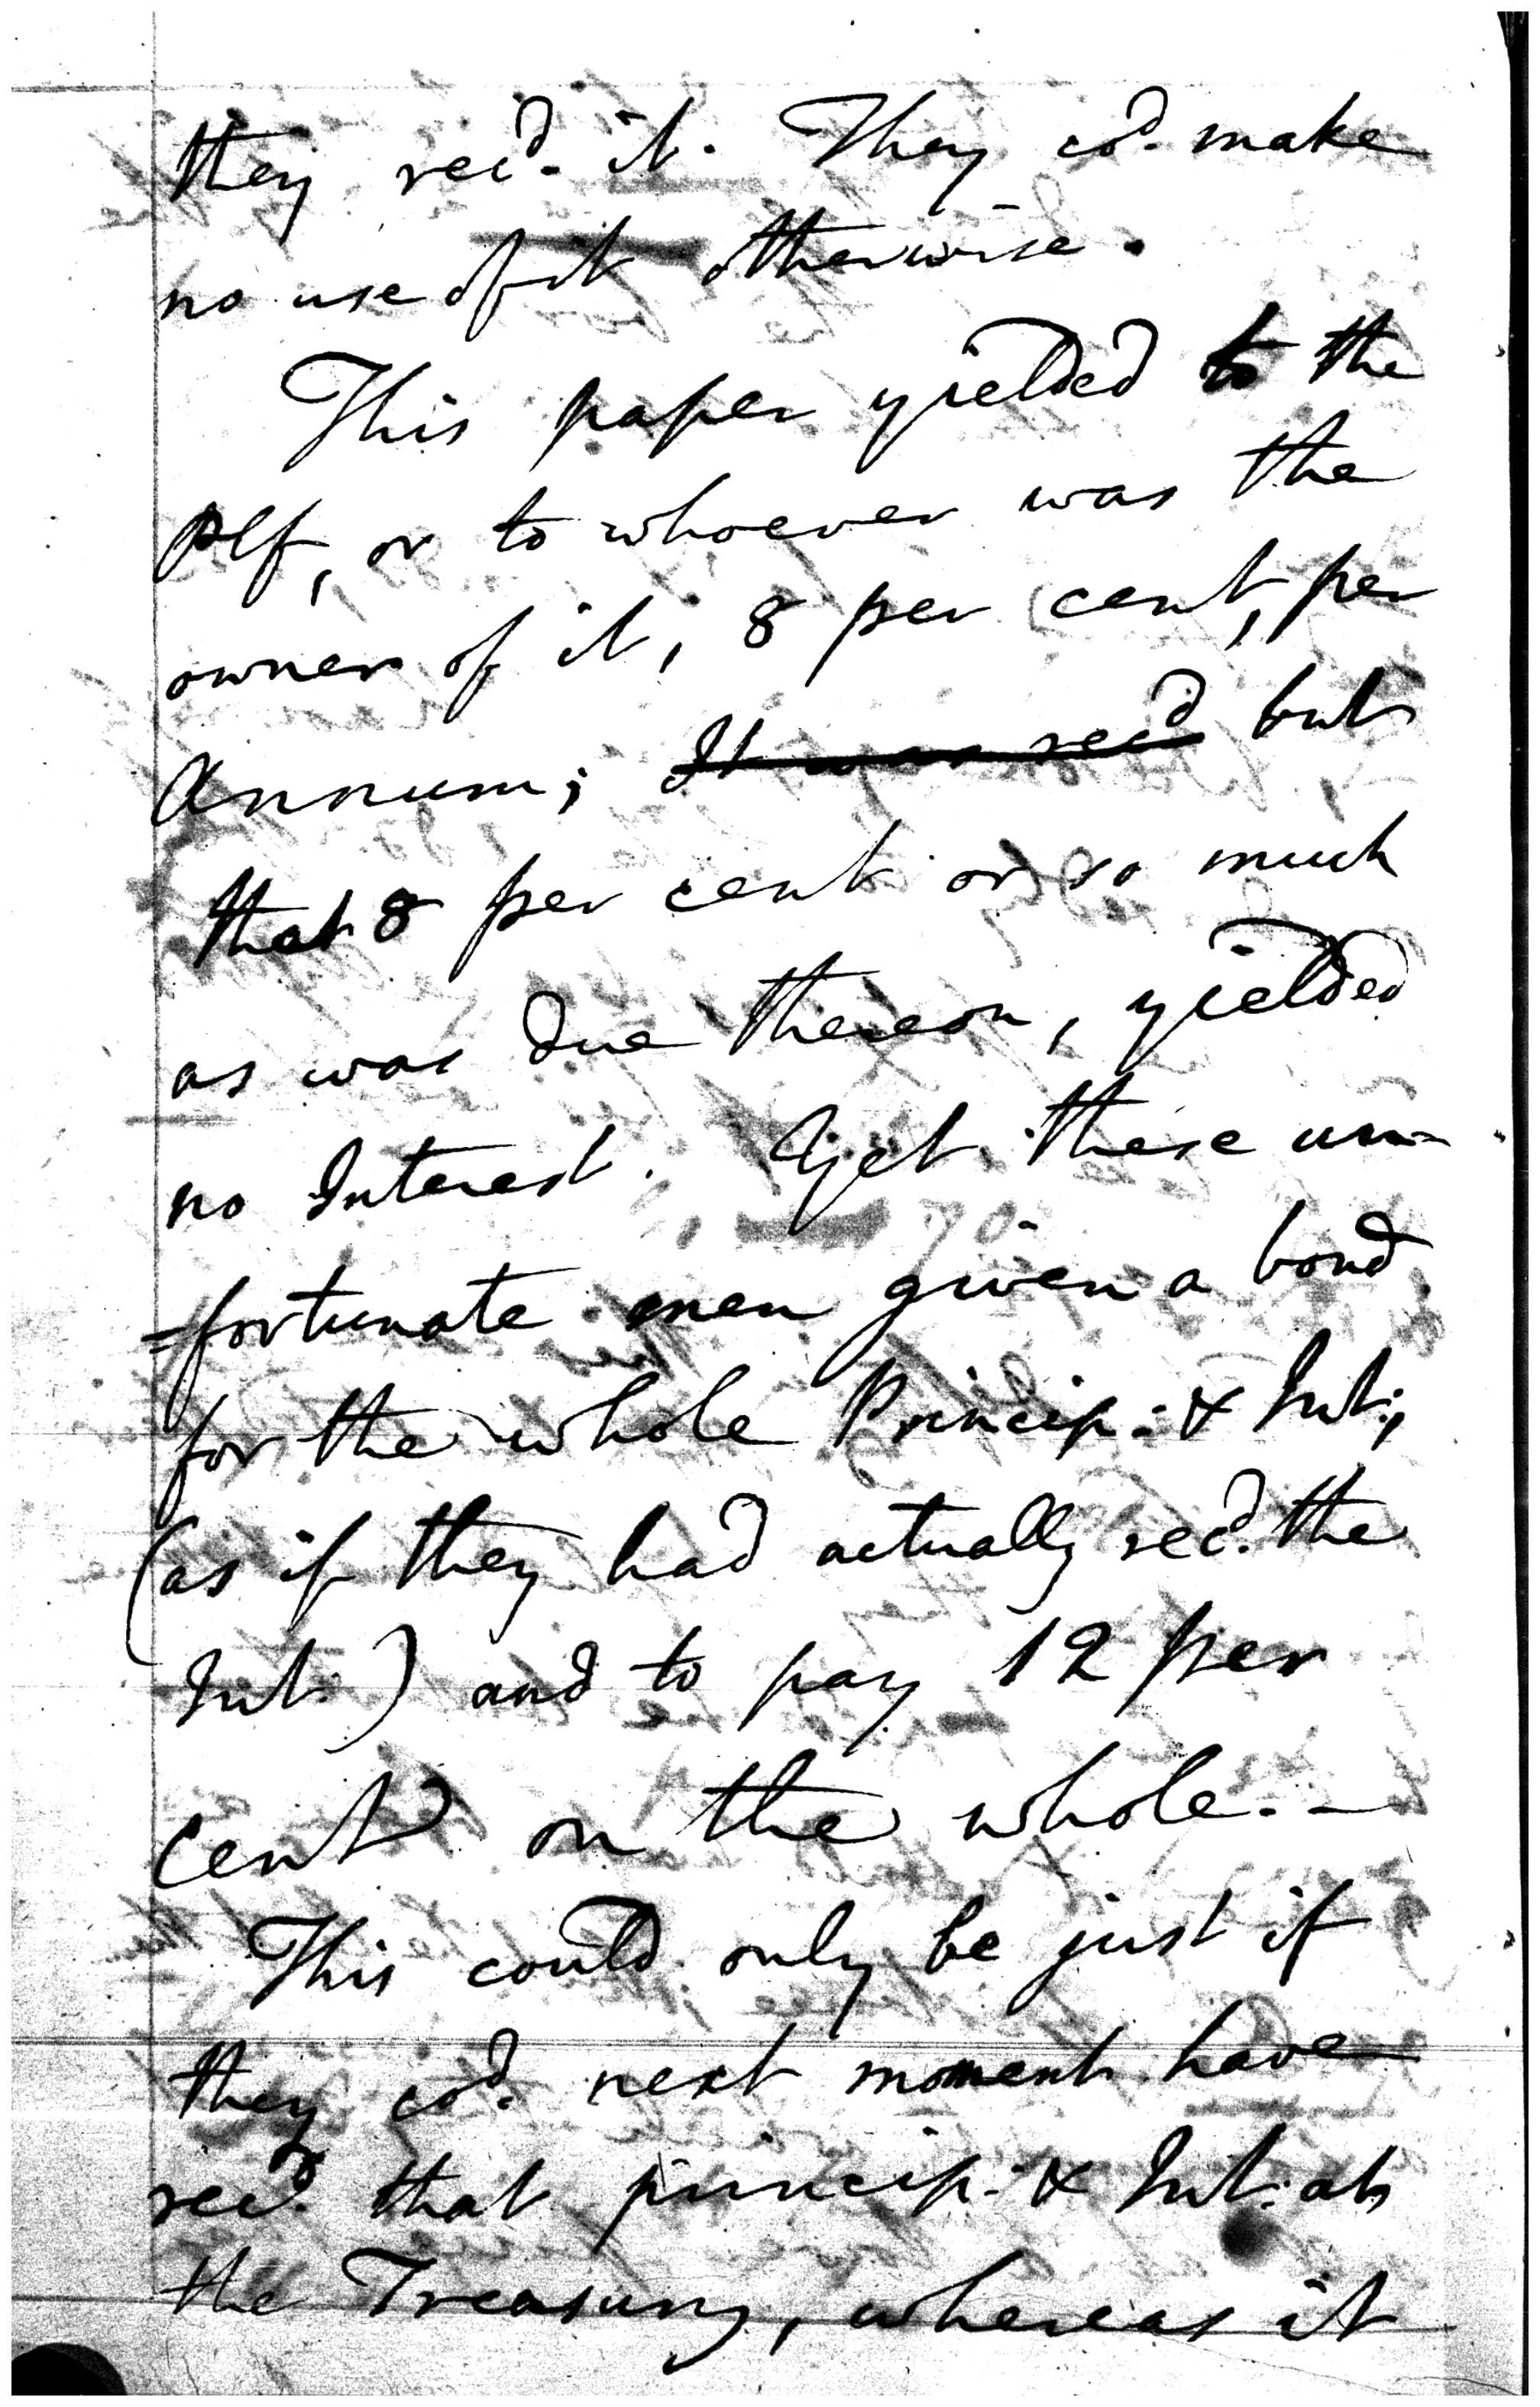 they rec'd. it. They co'd. make
no use of it otherwise.
This paper yielded to the
Plf, or to whoever was the
owner of it, 8 per cent, per
Annum; It was rec'd but
that 8 per cent or so much
as was due thereon, yielded
no Interest. Yet these un-
=fortunate men given a bond
for the whole Princip: & Int:,
(as if they had actually rec'd. the
Int:) and to pay 12 per
Cent on the whole. -
This could only be just if
they co'd. next moment have
rec'd. that princip: & Int: at
the Treasury, whereas it